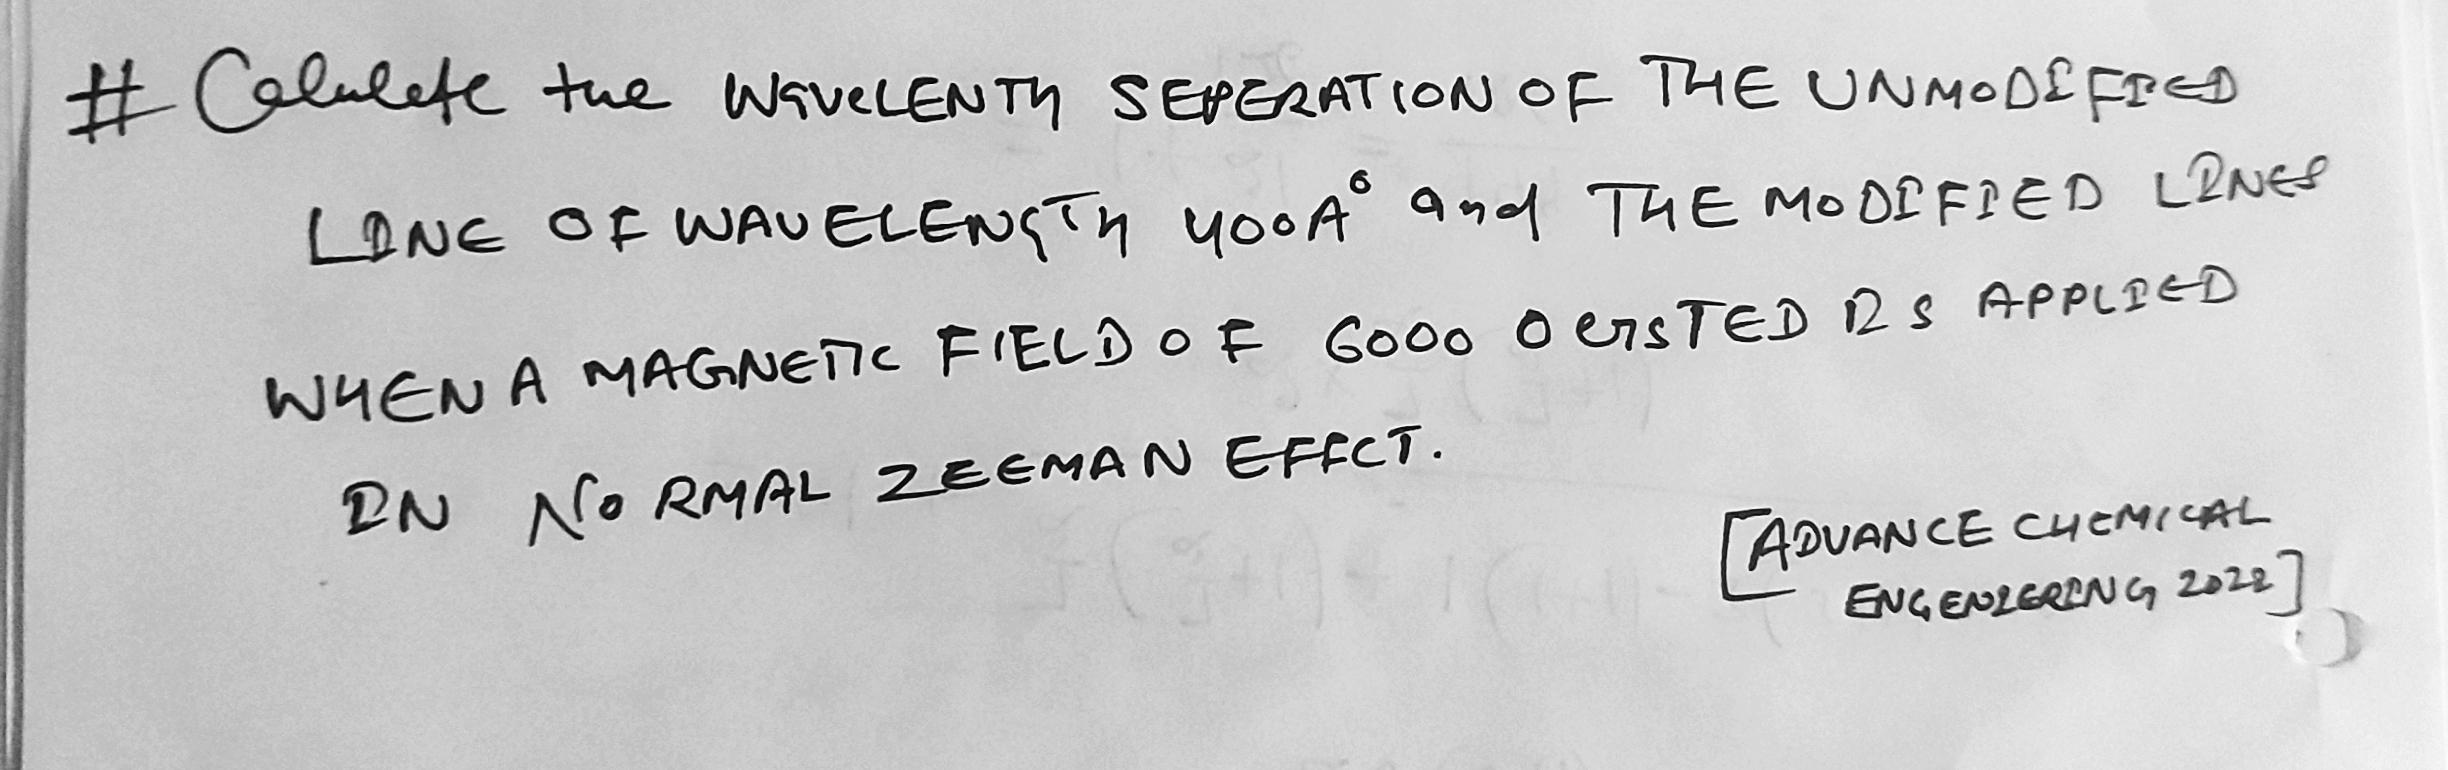 # Calulate the WAVELENTH SEPERATION OF THE UNMODIFIED
LINE OF WAVELENGTH 400A° and THE MODIFIED LINES
WHEN A MAGNETIC FIELD OF 6000 OERSTED IS APPLIED
IN NORMAL ZEEMAN EFFECT.
[ADVANCE CHEMICAL
ENGENIERING 2022]